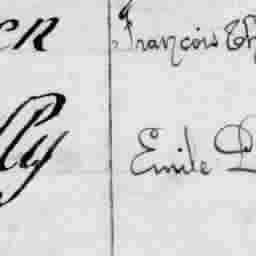 er François Th
lly Emile D